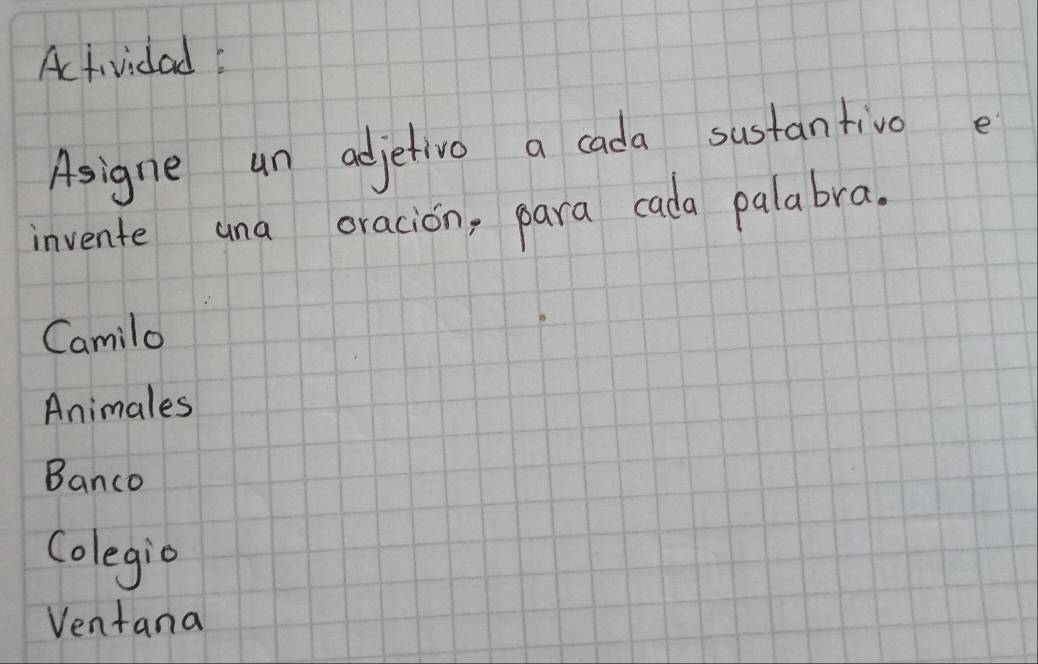 Actividad:
Asigne un adjetivo a cada sustantivo e
invente una oración, para cada palabra.
Camilo
Animales
Banco
Colegio
Ventana